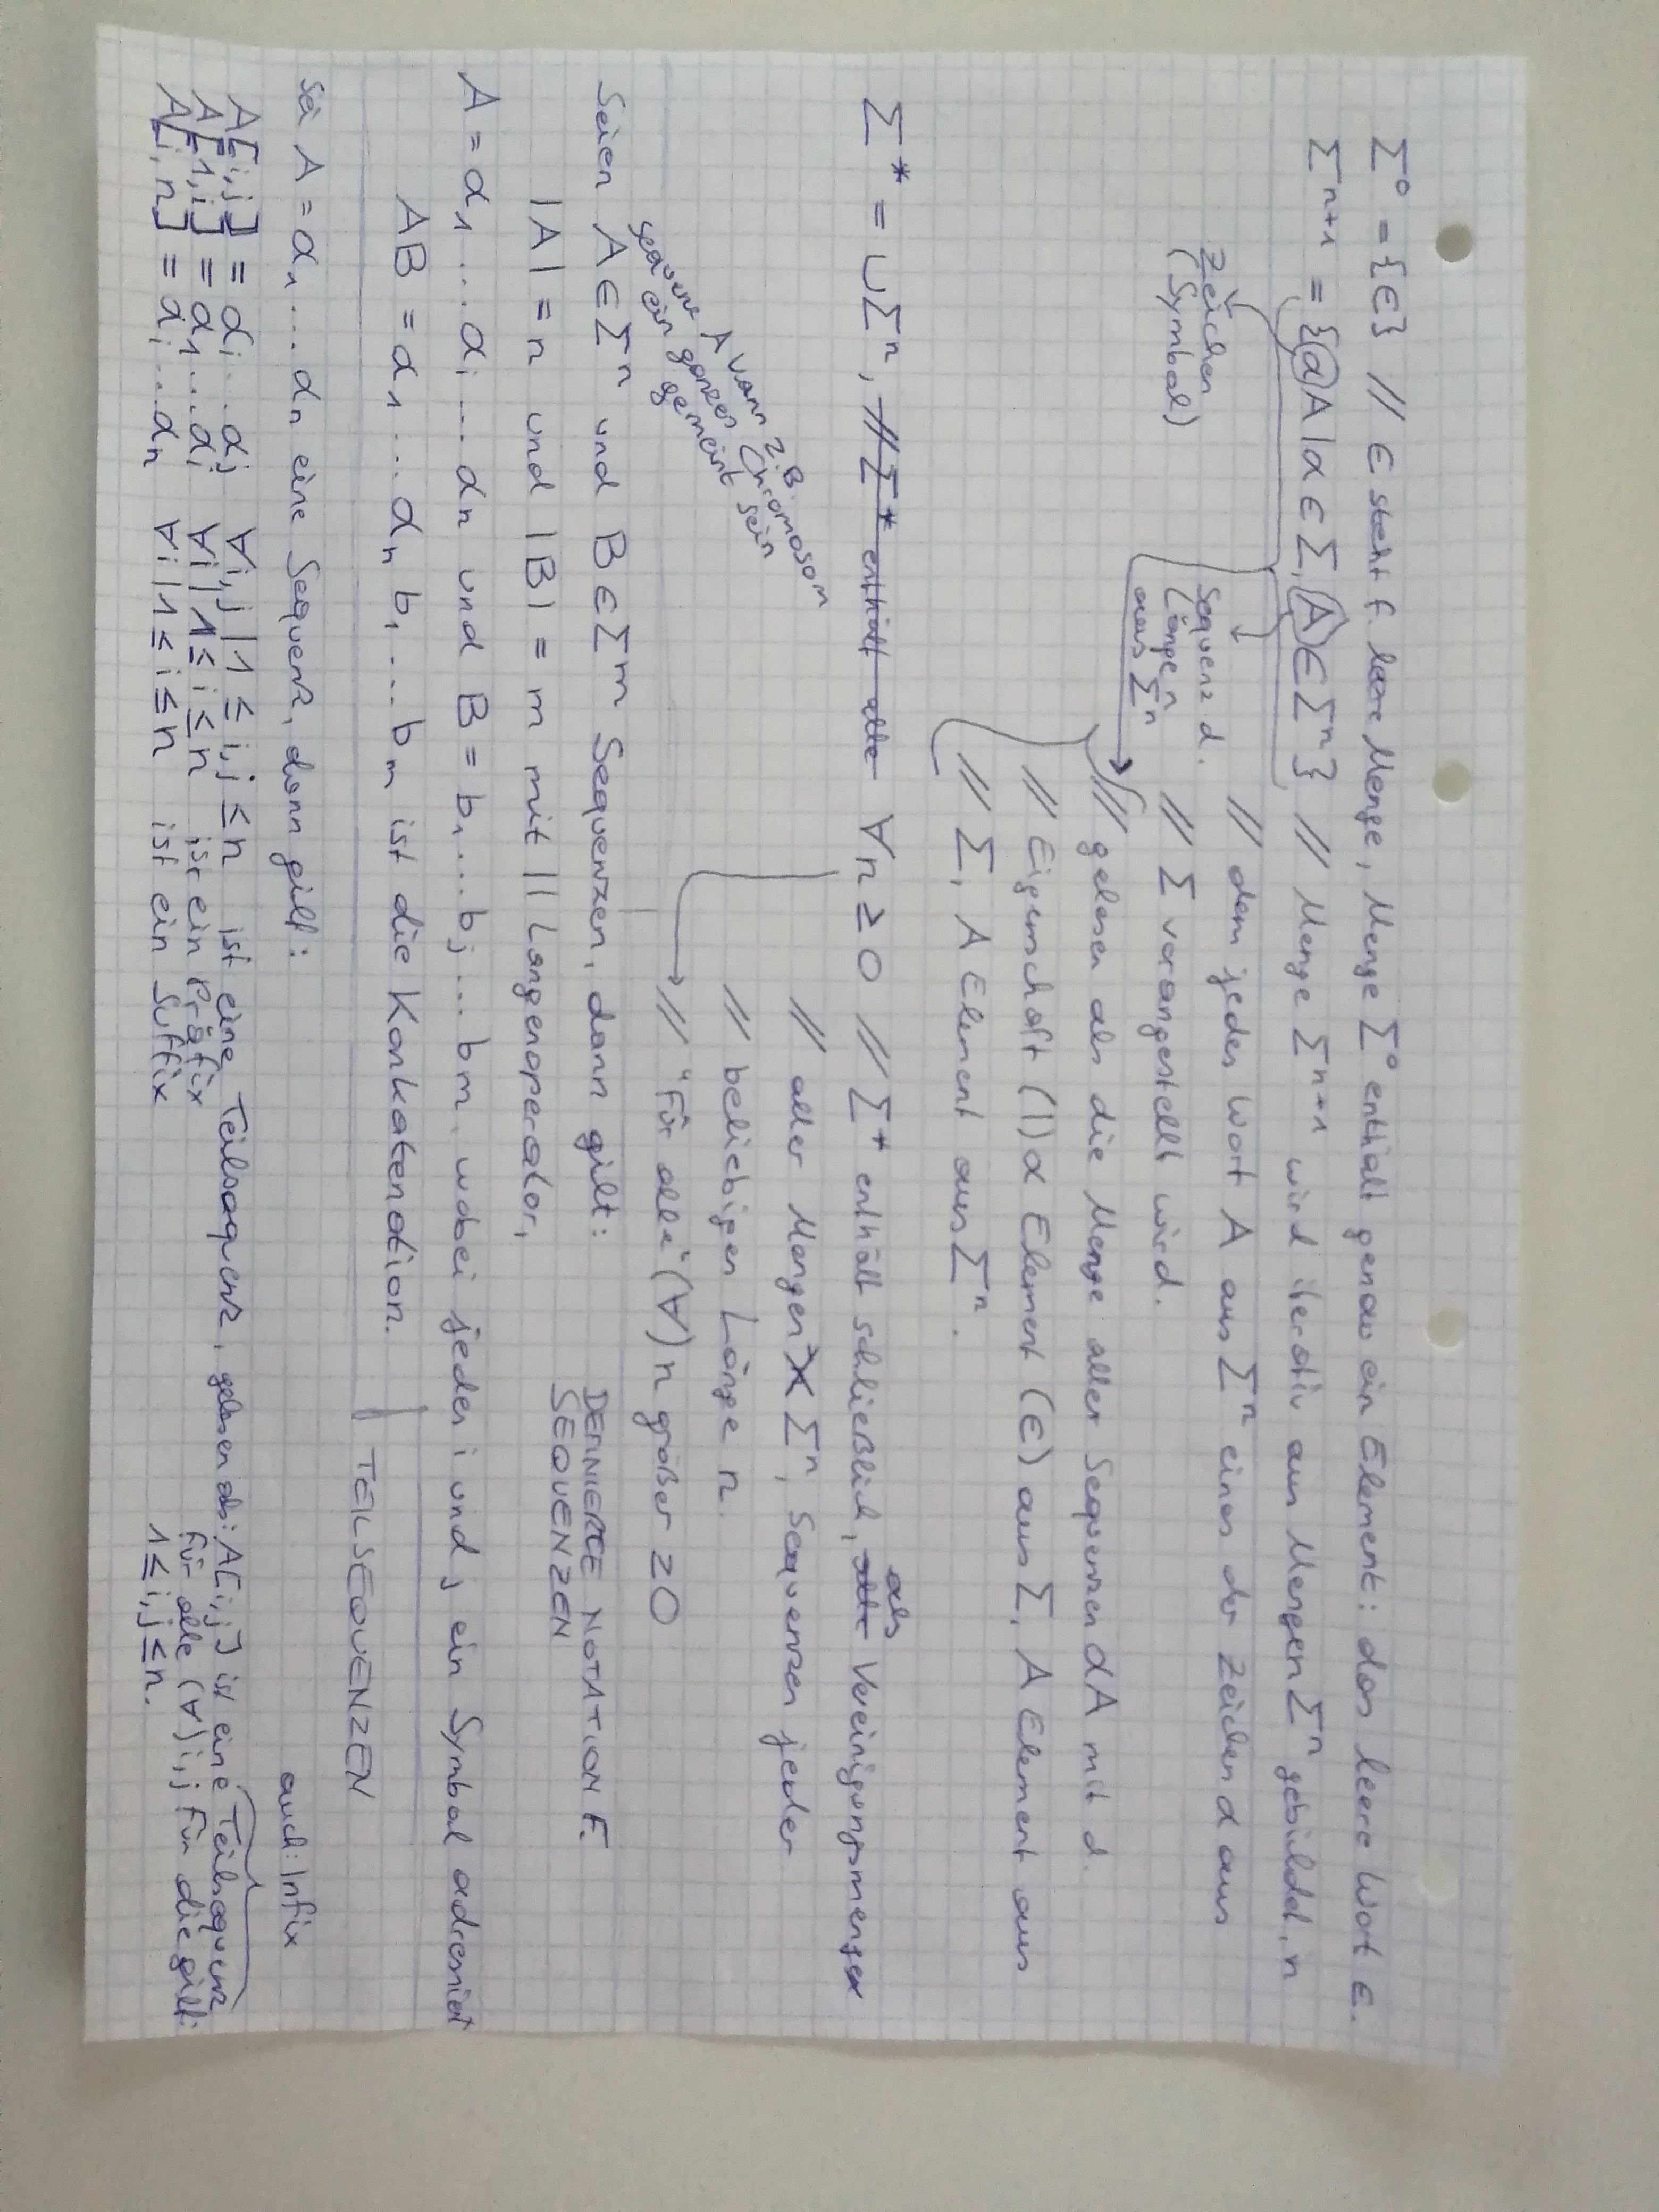 Σ⁰ = {ϵ} // ϵ steht f. leere Menge, Menge Σ⁰ enthält genau ein Element: das leere Wort ϵ.
Σⁿ⁺¹ = {αA | α ϵ Σ, A ϵ Σⁿ} // Menge Σⁿ⁺¹ wird iterativ aus Mengen Σⁿ gebildet, n
// dem jedes Wort A aus Σⁿ eines der Zeichen α aus
// Σ vorangestellt wird.
Zeichen
(Symbol)
Sequenz d.
Länge n
aus Σⁿ
// gelesen als die Menge aller Sequenzen αA mit α.
// Eigenschaft (|) α Element (ϵ) aus Σ, A Element aus
// Σ, A Element aus Σⁿ.
Σ* = ∪Σⁿ, // Σ* enthält alle ∀n ≥ 0 // Σ⁺ enthält schließlich, als Vereinigungsmengen
// aller Mengen Σⁿ, Sequenzen jeder
// beliebigen Länge n.
// "Für alle" (∀) n größer ≥ 0
Sequenz A kann z.B.
ein ganzes Chromosom
gemeint sein
Seien A ϵ Σⁿ und B ϵ Σᵐ Sequenzen, dann gilt:
DEFINIERTE NOTATION F.
SEQUENZEN
|A| = n und |B| = m mit || Längenoperator,
A = α₁ ... αᵢ ... αₙ und B = b₁ ... bⱼ ... bm, wobei jedes i und j ein Symbol adressiert
AB = α₁ ... αₙ b₁ ... bₘ ist die Konkatenation.
TEILSEQUENZEN
Sei A = α₁ ... αₙ eine Sequenz, dann gilt:
auch: Infix
A[i,j] = αᵢ ... αⱼ ∀i,j | 1 ≤ i,j ≤ n ist eine Teilsequenz, gelesen als: A[i,j] ist eine Teilsequenz
A[1,i] = α₁ ... αᵢ ∀i | 1 ≤ i ≤ n ist ein Präfix für alle (∀) i,j für die gilt:
A[i,n] = αᵢ ... αₙ ∀i | 1 ≤ i ≤ n ist ein Suffix 1 ≤ i,j ≤ n.